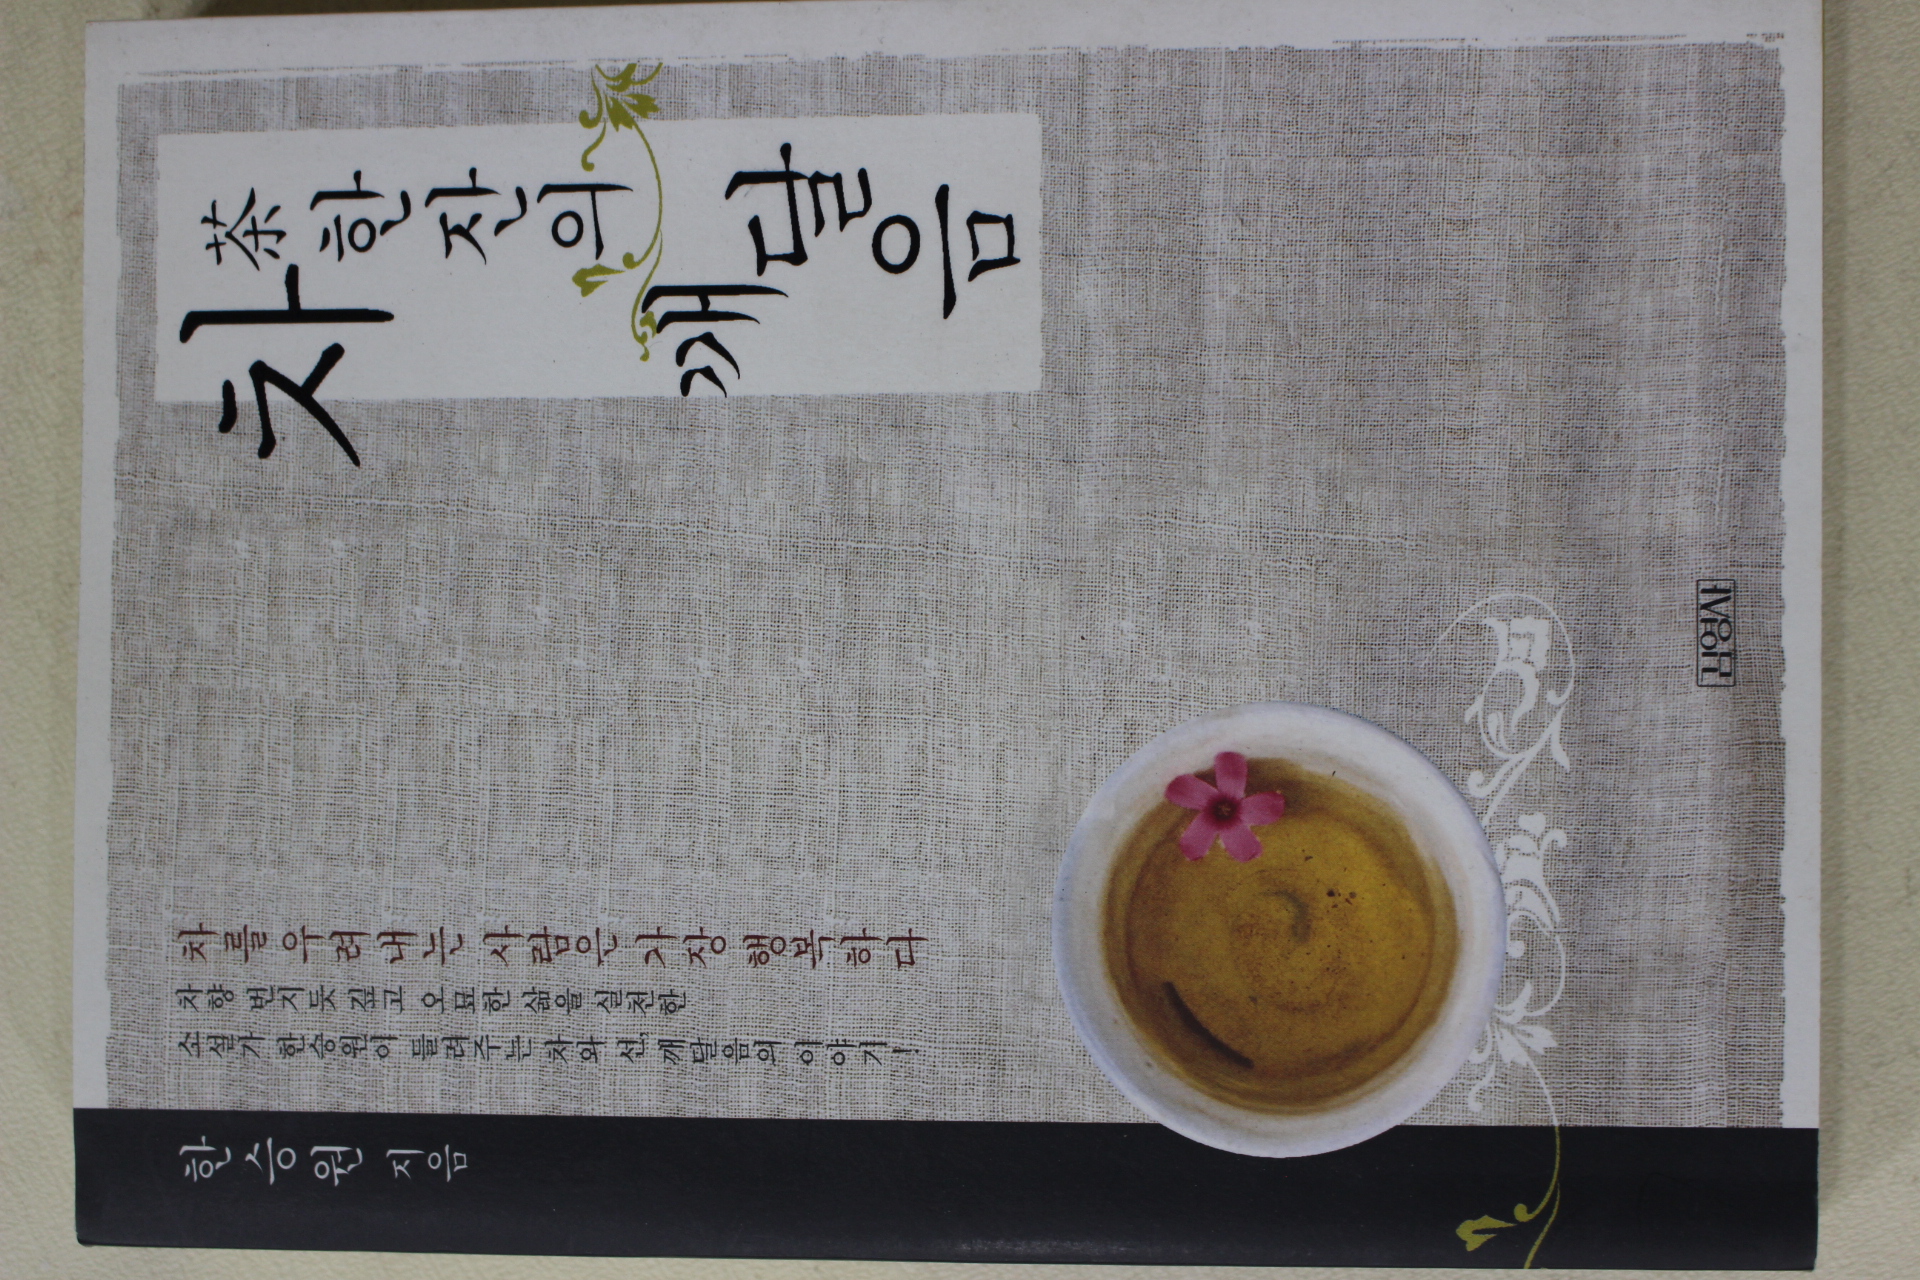 차茶 한 잔의
깨달음
차를 우려내는 사람은 가장 행복하다
차향 번지듯 깊고 오묘한 삶을 실천한
소설가 한승원이 들려주는 차와 선, 깨달음의 이야기!
한승원 지음